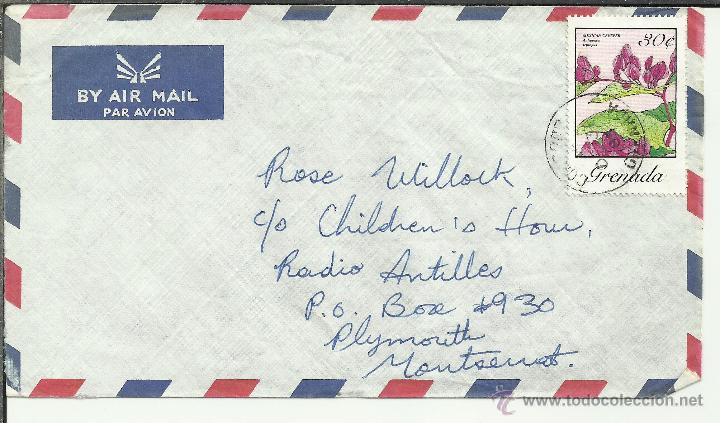 BY AIR MAIL
PAR AVION
MEXICAN CREEPER
30¢
Grenada
Rose Willock,
c/o Children's Hour,
Radio Antilles
P.O. Box 930
Plymouth
Montserrat.
www.todocoleccion.net